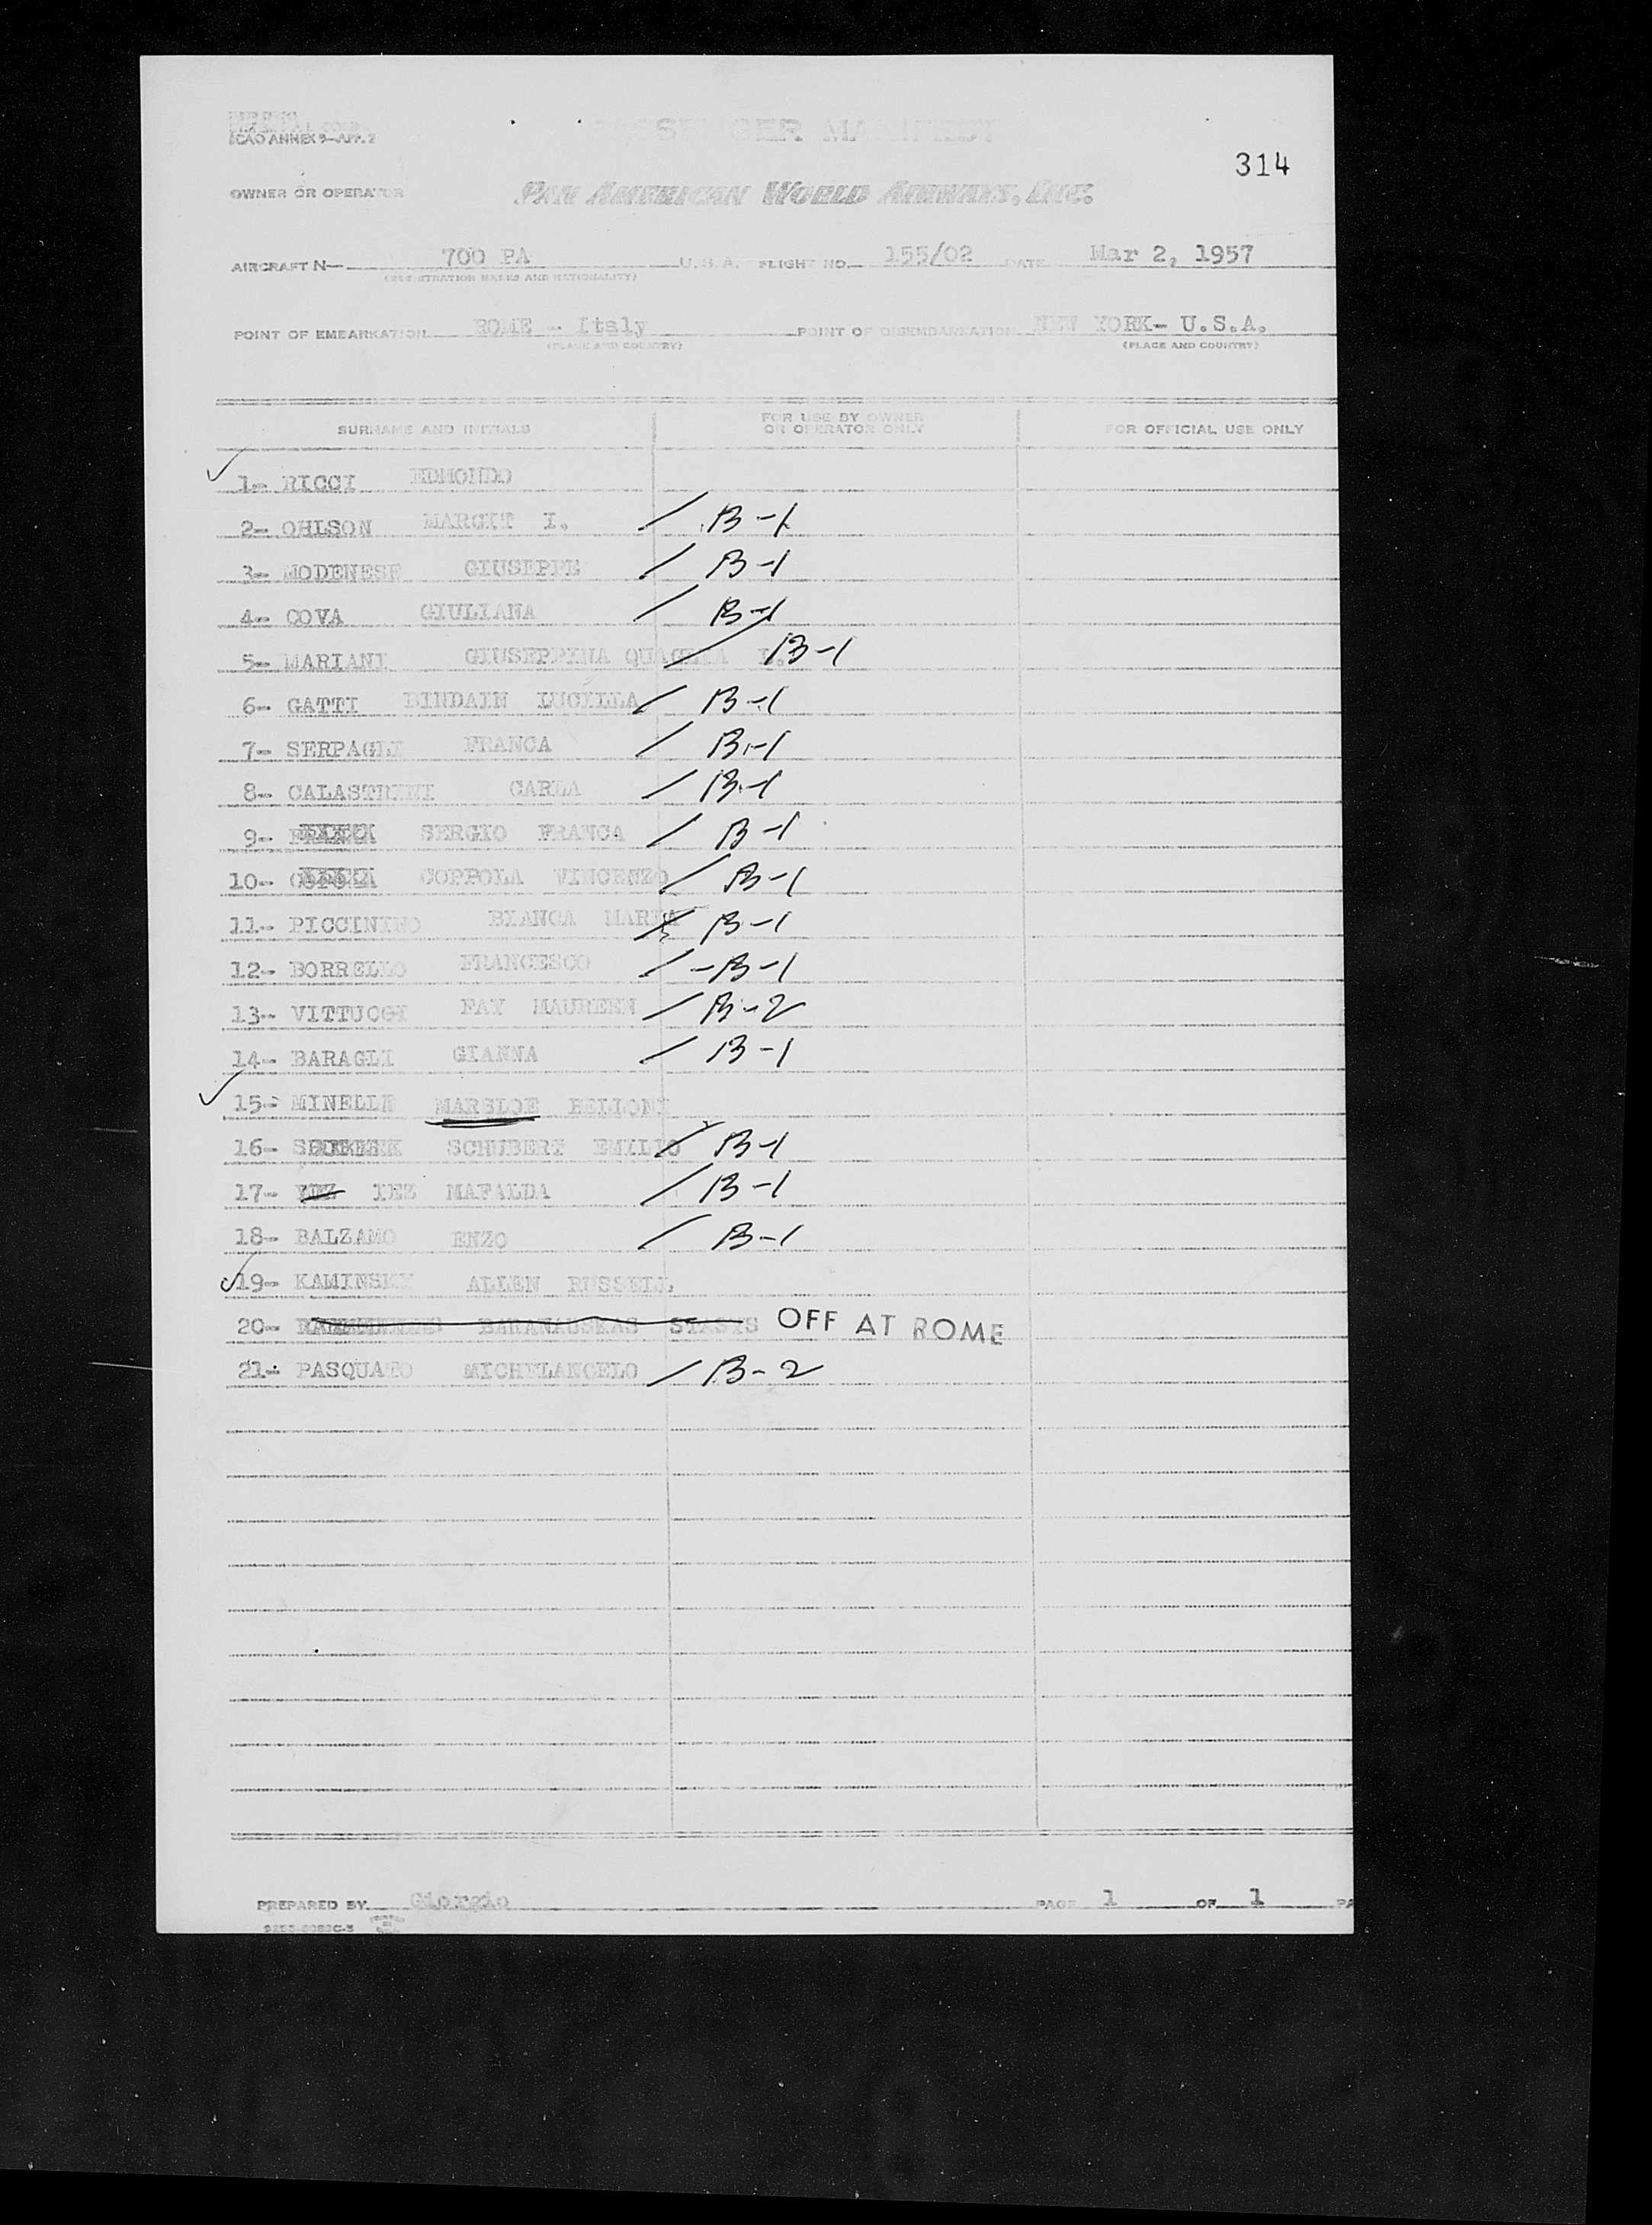 ICAO ANNEX 9—APP. 2
PASSENGER MANIFEST
314
OWNER OR OPERATOR PAN AMERICAN WORLD AIRWAYS, INC.
AIRCRAFT N— 700 PA U.S.A. FLIGHT NO. 155/02 DATE Mar 2, 1957
(REGISTRATION MARKS AND NATIONALITY)
POINT OF EMBARKATION ROME - Italy POINT OF DISEMBARKATION NEW YORK- U.S.A.
(PLACE AND COUNTRY) (PLACE AND COUNTRY)
SURNAME AND INITIALS FOR USE BY OWNER OR OPERATOR ONLY FOR OFFICIAL USE ONLY
✓ 1- RICCI EDMONDO
2- OHLSON MARGIT I. / B-1
3- MODENESE GIUSEPPE / B-1
4- COVA GIULIANA / B-1
5- MARIANI GIUSEPPINA QUAGLIA I. / B-1
6- GATTI BINDAIN LUCILLA / B-1
7- SERPAGLI FRANCA / B-1
8- CALASTRINI CARLA / B-1
9- SERGIO FRANCA / B-1
10- COPPOLA VINCENZO / B-1
11- PICCININO BIANCA MARIA / B-1
12- BORRELLO FRANCESCO / -B-1
13- VITTUCCI FAY MAUREEN / B-2
14- BARAGLI GIANNA / B-1
✓ 15- MINELLI MARSLOE BELLONI
16- SCHUBERT EMILIO / B-1
17- IEZ MAFALDA / B-1
18- BALZAMO ENZO / B-1
✓ 19- KAMINSKY ALLEN RUSSELL
20- BARANAUSKAS STASYS OFF AT ROME
21- PASQUATO MICHELANGELO / B-2
PREPARED BY Giorgio PAGE 1 OF 1 PA